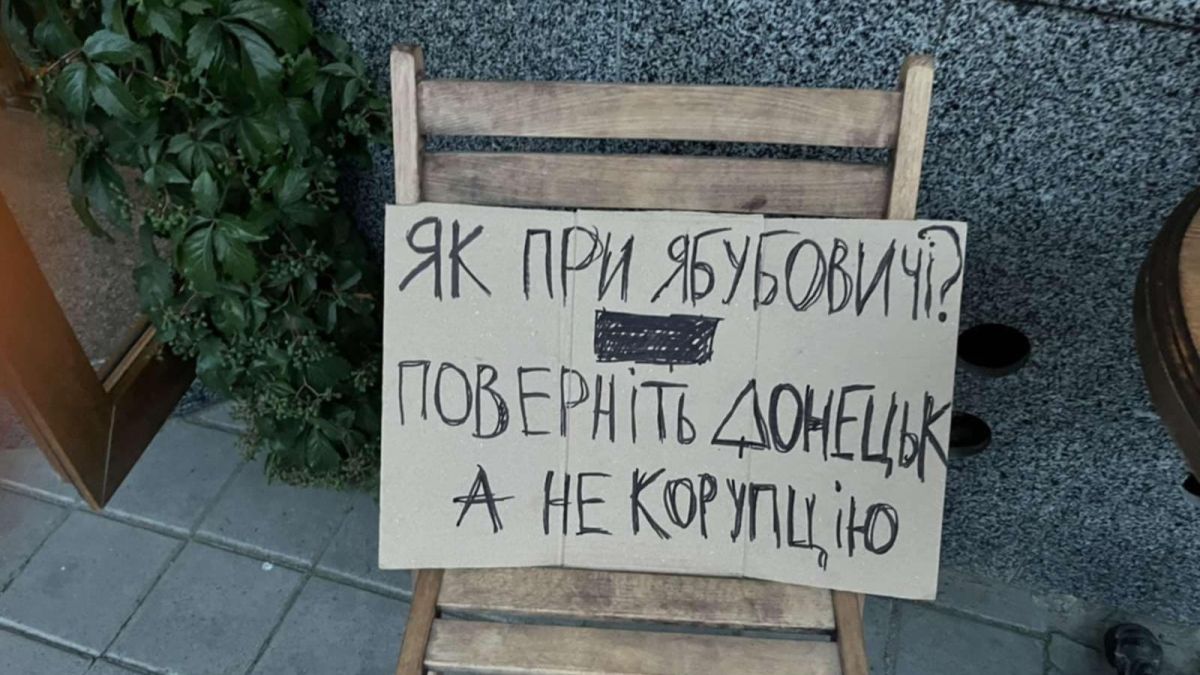 ЯК ПРИ ЯБУБОВИЧІ?
ПОВЕРНІТЬ ДОНЕЦЬК
А НЕ КОРУПЦІЮ